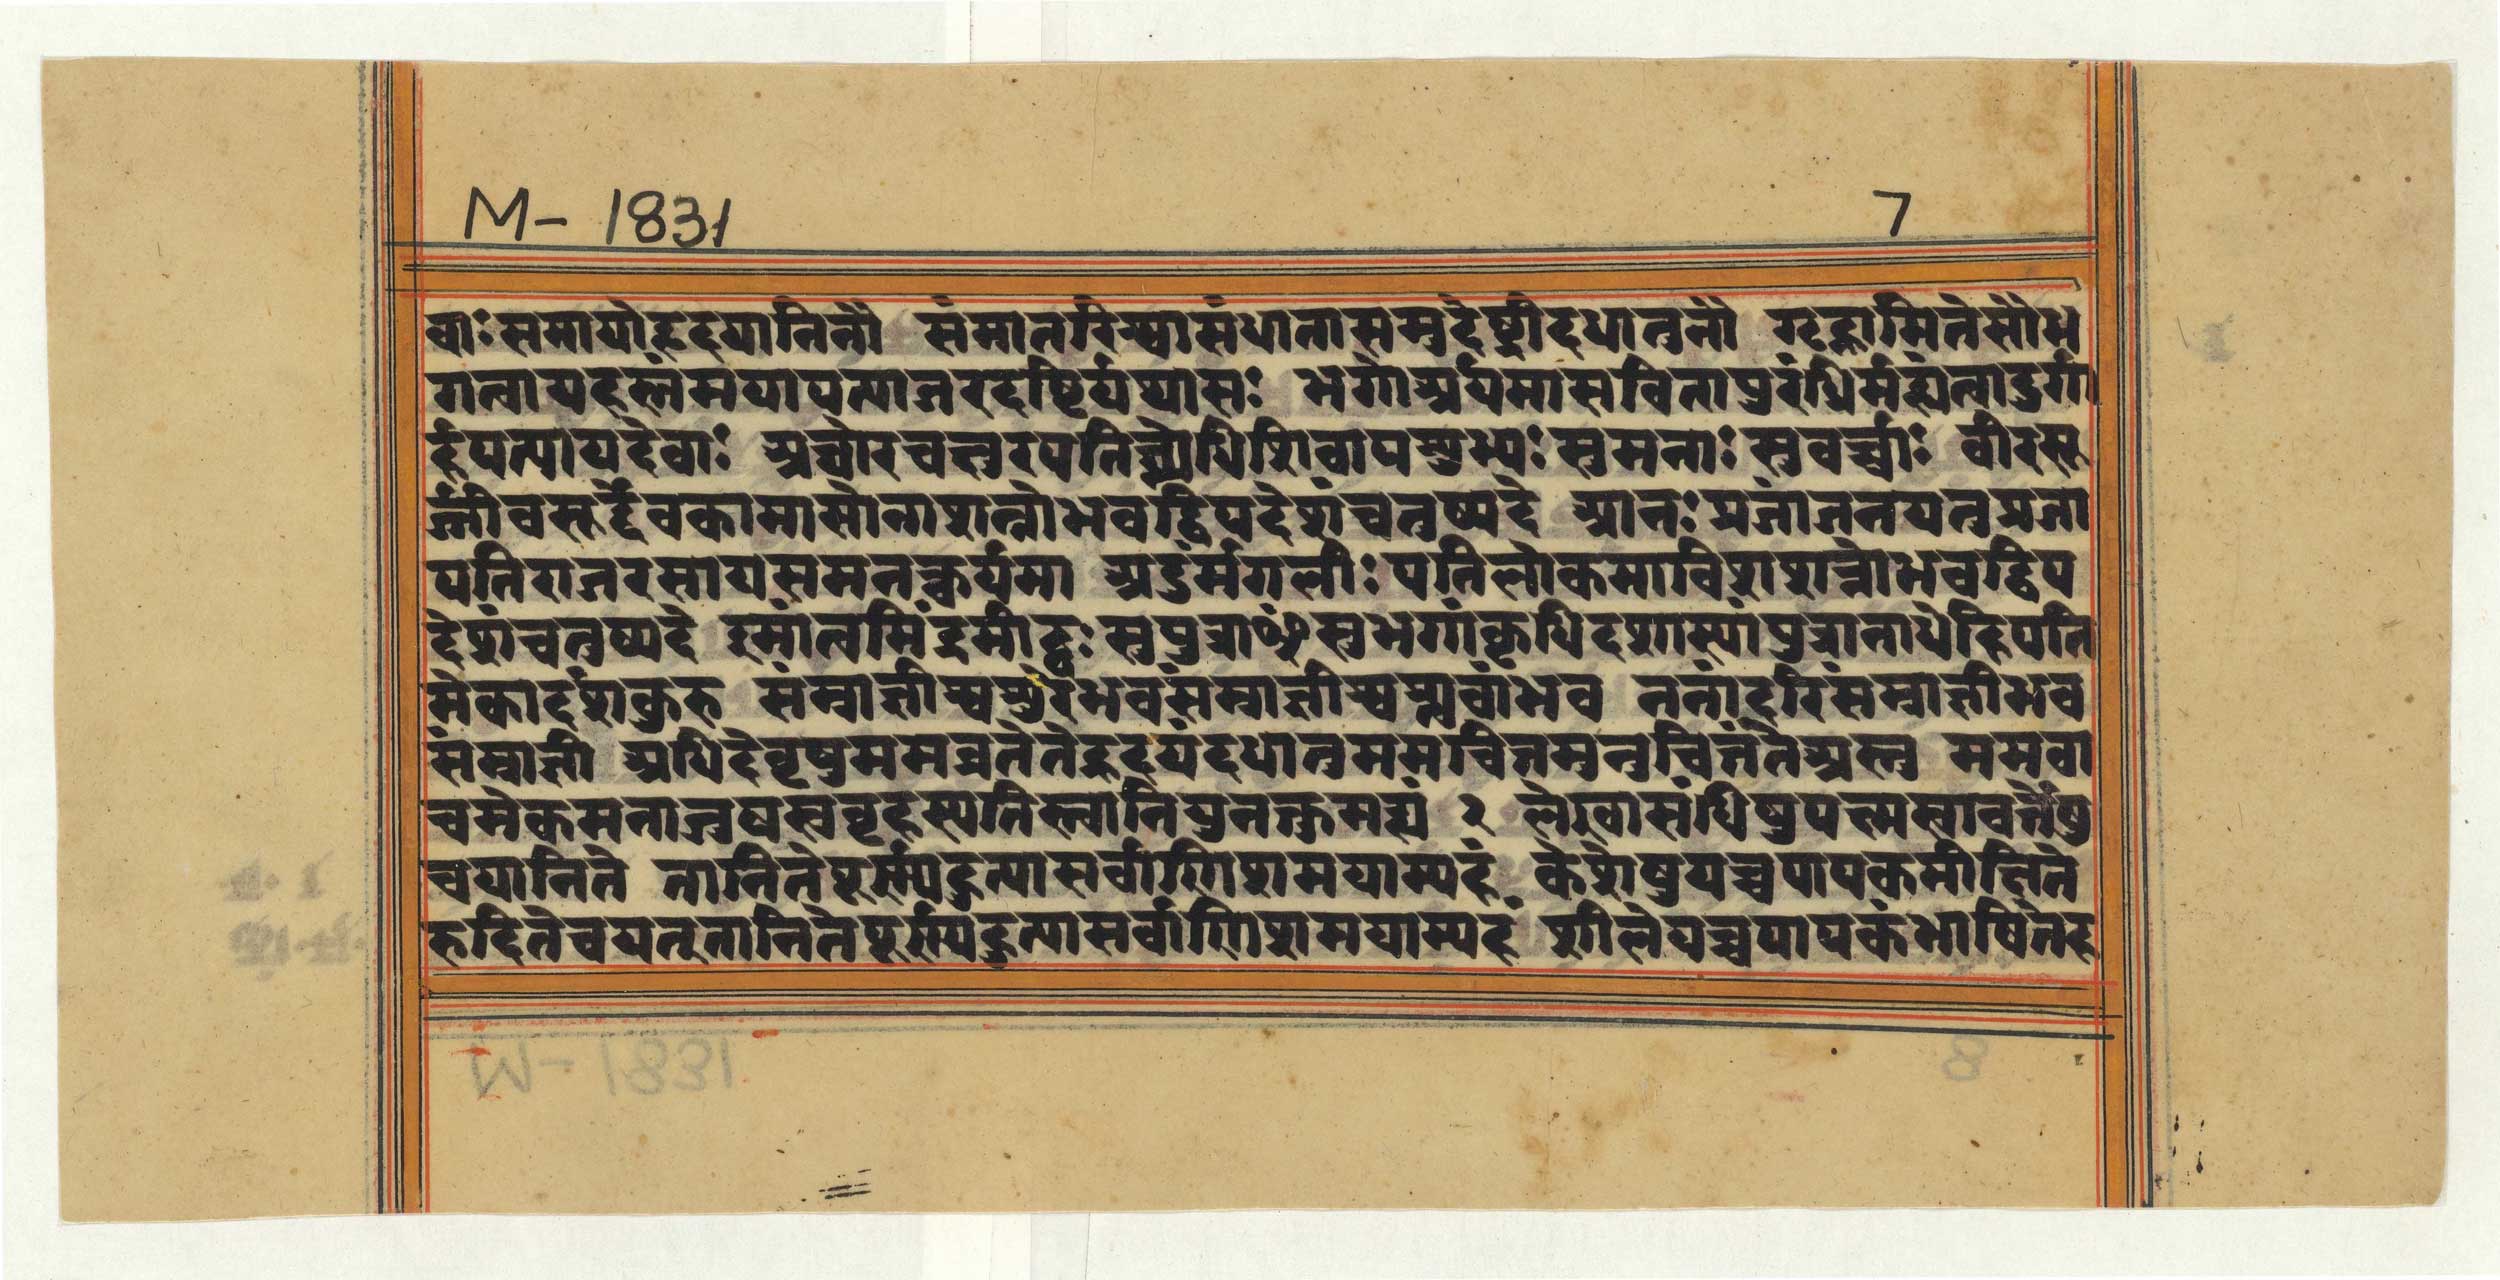 M- 1831
7
वाः समायो हृदयानि नौ संमातरिश्वा संधाता समुदेष्ट्री दधातु नौ गृह्णामि ते सौभ
गत्वाय हस्तं मया पत्या जरदष्टिर्यथासः भगो अर्यमा सविता पुरंधिर्मह्यं त्वादुर्गा
र्हपत्याय देवाः अघोरचक्षुरपतिघ्न्येधि शिवा पशुभ्यः सुमनाः सुवर्चाः वीरसू
र्जीवसूर्देवकामा स्योना शन्नो भव द्विपदे शं चतुष्पदे आनः प्रजां जनयतु प्रजा
पतिराजरसाय समनक्त्वर्यमा अदुर्मंगलीः पतिलोकमाविश शन्नो भव द्विप
दे शं चतुष्पदे इमां त्वमिंद्रमीढ्वः सुपुत्रां सुभगां कृधि दशास्यां पुत्रानाधेहि पति
मेकादशं कुरु संम्राज्ञी श्वशुरे भव संम्राज्ञी श्वश्र्वां भव ननांदरि संम्राज्ञी भव
संम्राज्ञी अधिदेवृषु मम व्रते ते हृदयं दधातु मम चित्तमनुचित्तं ते अस्तु मम वा
चमेकमना जुषस्व बृहस्पतिस्त्वा नियुनक्तु मह्यं २ लेखासंधिषु पक्ष्मस्वावर्त्तेषु
च यानि ते तानि ते पूर्णाहुत्या सर्वाणि शमयाम्यहं केशेषु यच्च पापकमीक्षिते
रुदिते च यत् तानि ते पूर्णाहुत्या सर्वाणि शमयाम्यहं शीले यच्च पापकं भाषिते ह